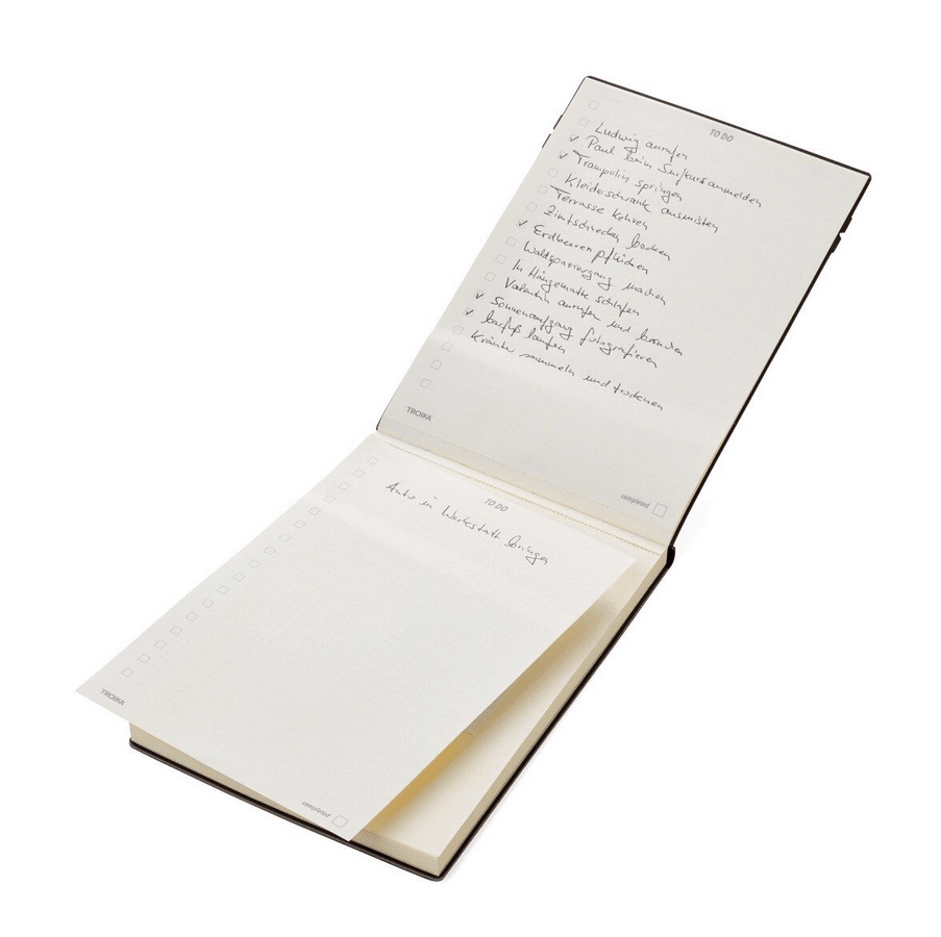 TO DO
Ludwig anrufen
✓ Paul beim Surfkurs anmelden
✓ Trampolin springen
Kleiderschrank ausmisten
Terrasse kehren
Zimtschnecken backen
✓ Erdbeeren pflücken
Waldspaziergang machen
In Hängematte schlafen
Valentin anrufen und
✓ Sonnenaufgang fotografieren
✓ barfuß laufen
Kräuter sammeln und trocknen
TROIKA
completed
TO DO
Auto in Werkstatt bringen
TROIKA
completed